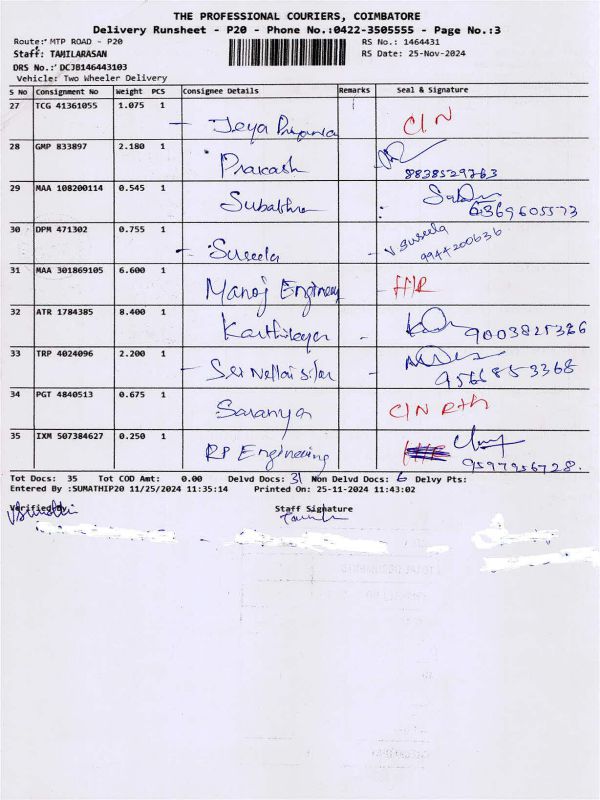 THE PROFESSIONAL COURIERS, COIMBATORE
Delivery Runsheet - P20 - Phone No.:0422-3505555 - Page No.:3
Route: MTP ROAD - P20 RS No.: 1464431
Staff: TAMILARASAN RS Date: 25-Nov-2024
DRS No.: DCJB146443103
Vehicle: Two Wheeler Delivery
S No Consignment No Weight PCS Consignee Details Remarks Seal & Signature
27 TCG 41361055 1.075 1 Jeya Priyanka C/N
28 GMP 833897 2.180 1 Prakash 8838529763
29 MAA 108200114 0.545 1 Subathra 6369605573
30 DPM 471302 0.755 1 Suseela V. Suseela
9944200636
31 MAA 301869105 6.600 1 Manoj Engineering H/R
32 ATR 1784385 8.400 1 Karthikeyan 9003825326
33 TRP 4024096 2.200 1 Sri Nellai 9566853368
34 PGT 4840513 0.675 1 Saranya C/N Rth
35 IXM 507384627 0.250 1 RP Engineering 9597956728.
Tot Docs: 35 Tot COD Amt: 0.00 Delvd Docs: 31 Non Delvd Docs: 6 Delvy Pts:
Entered By :SUMATHIP20 11/25/2024 11:35:14 Printed On: 25-11-2024 11:43:02
Verified By Staff Signature